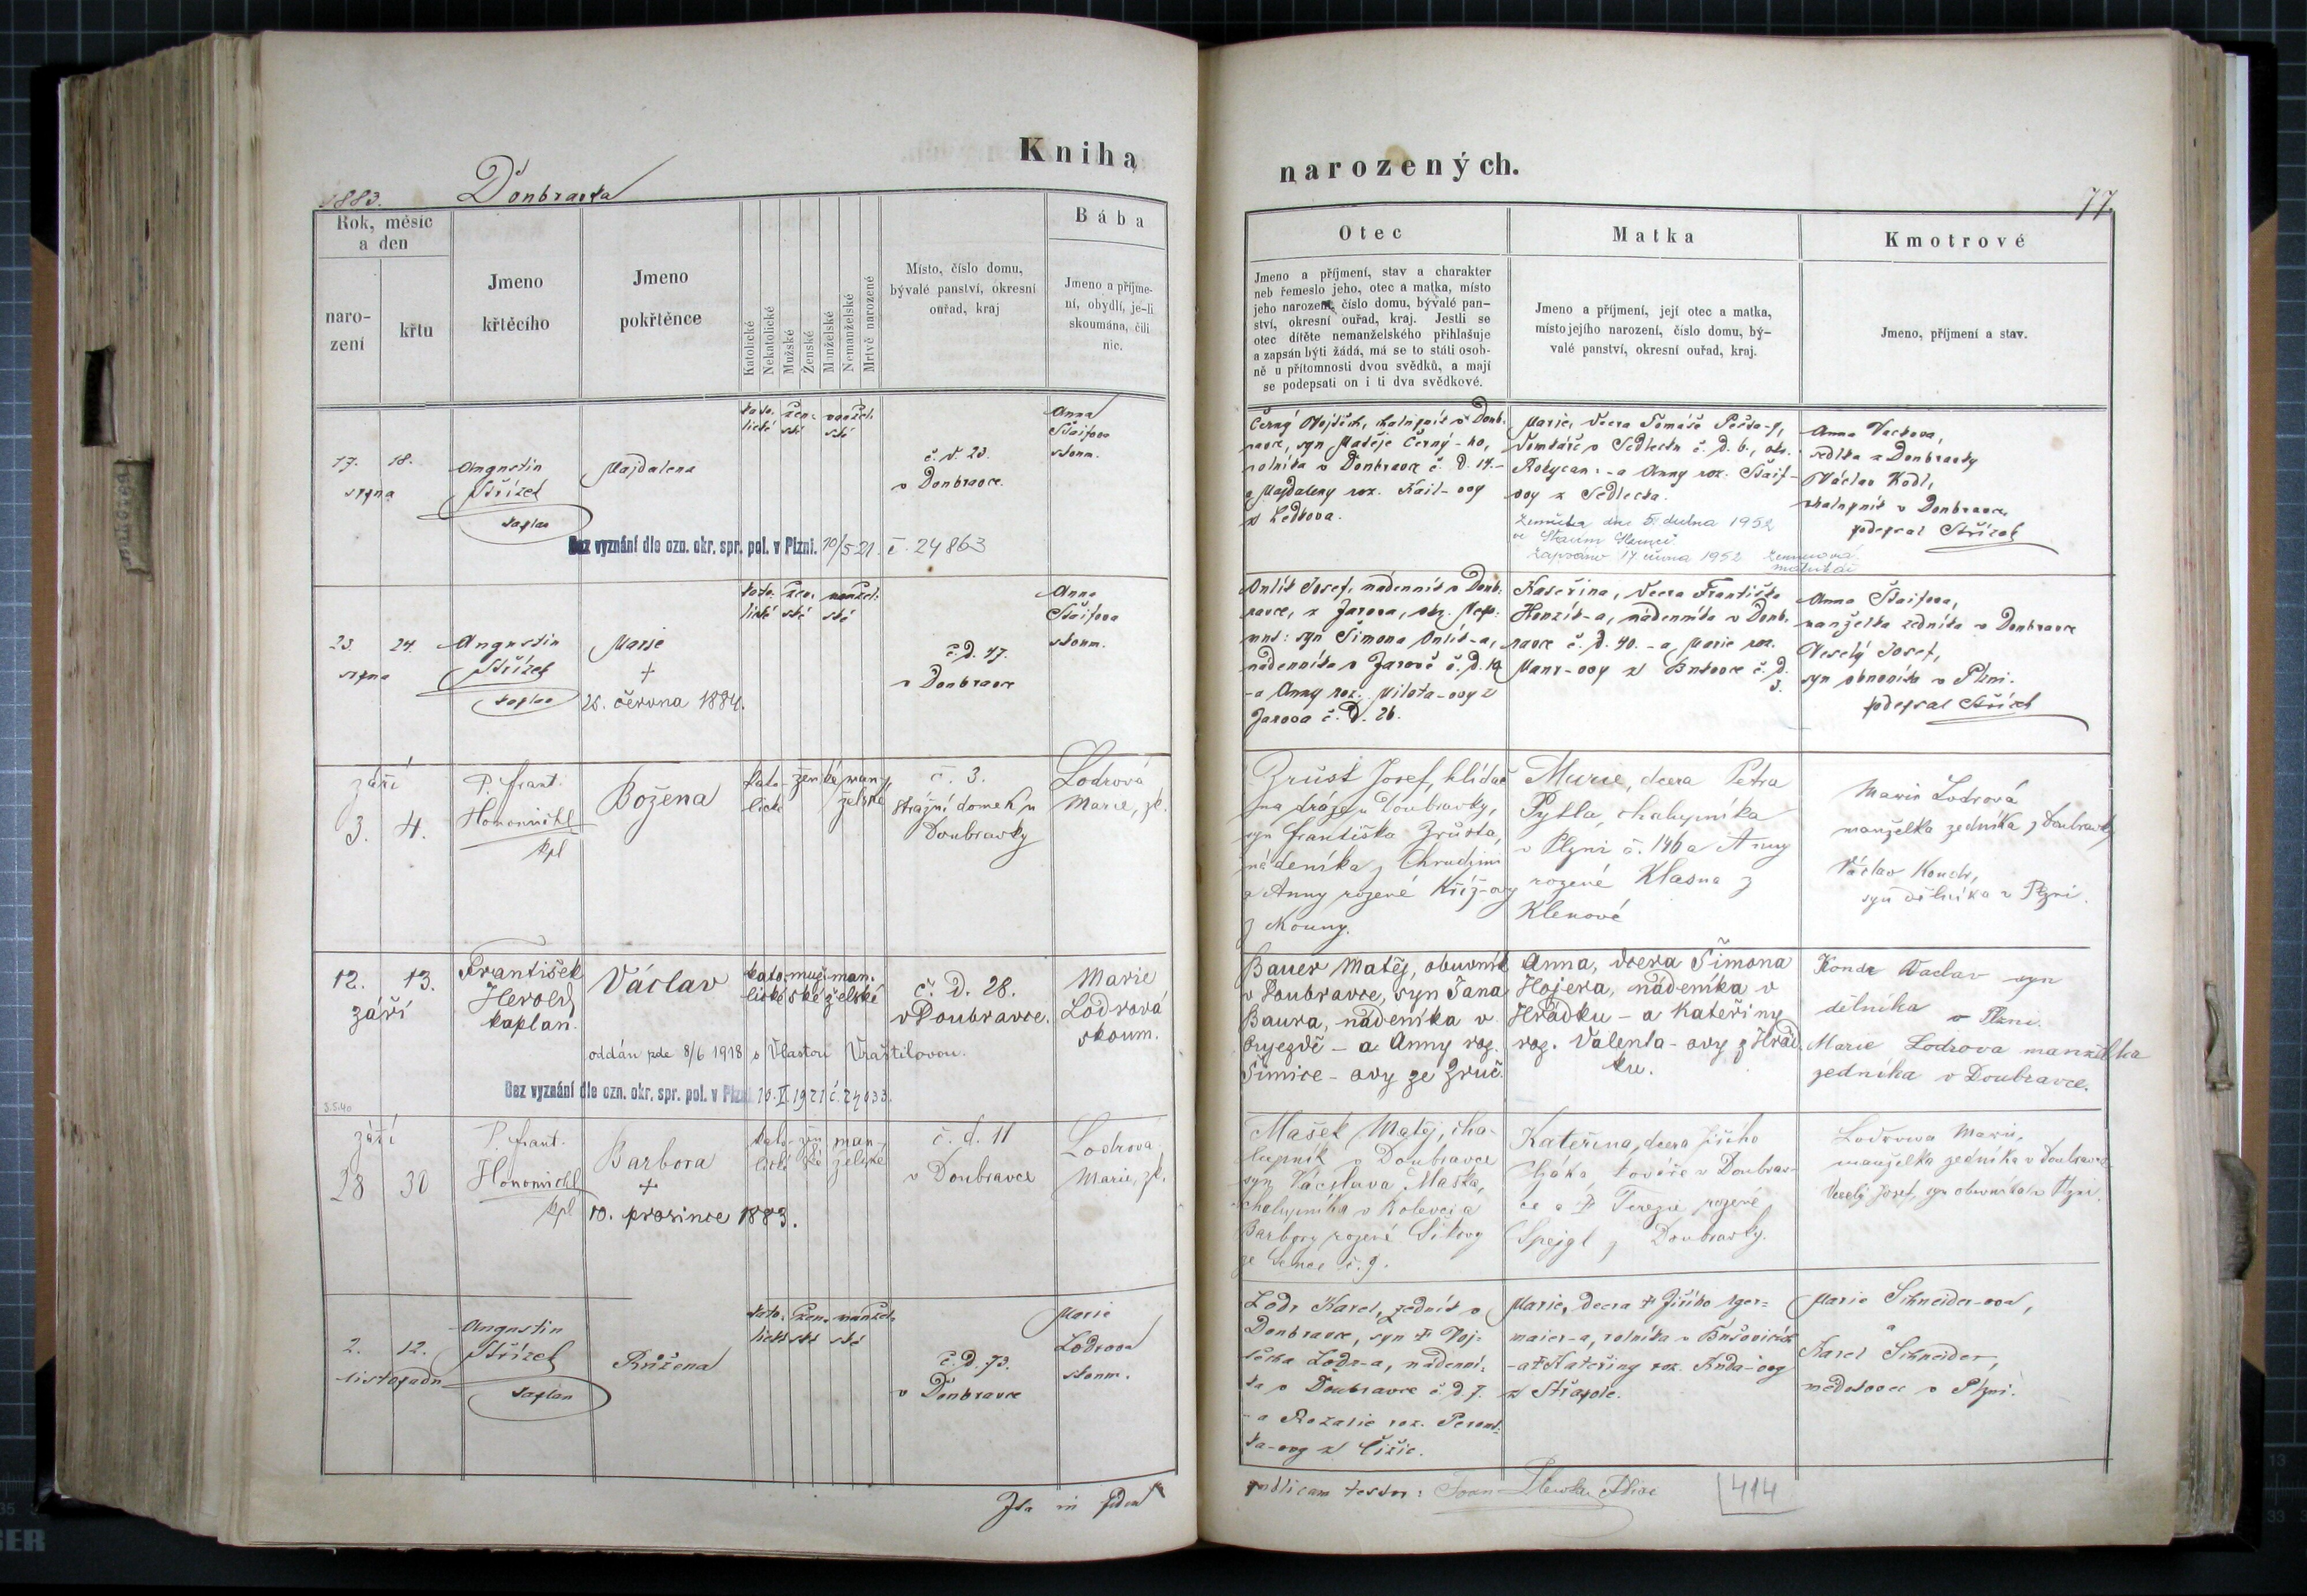 Kniha
narozených.
1883.
Doubravka
77.
Rok, měsíc
a den
naro-
zení
křtu
Jmeno
křtěcího
Jmeno
pokřtěnce
Katolické
Nekatolické
Mužské
Ženské
Manželské
Nemanželské
Mrtvě narozené
Místo, číslo domu,
bývalé panství, okresní
ouřad, kraj
Bába
Jmeno a příjme-
ní, obydlí, je-li
skoumána, čili
nic.
Otec
Jmeno a příjmení, stav a charakter
neb řemeslo jeho, otec a matka, místo
jeho narození, číslo domu, bývalé pan-
ství, okresní ouřad, kraj. Jestli se
otec dítěte nemanželského přihlašuje
a zapsán býti žádá, má se to státi osob-
ně u přítomnosti dvou svědků, a mají
se podepsati on i ti dva svědkové.
Matka
Jmeno a příjmení, její otec a matka,
místo jejího narození, číslo domu, bý-
valé panství, okresní ouřad, kraj.
Kmotrové
Jmeno, příjmení a stav.
17. 18.
srpna
Augustin
Střízek
kaplan
Majdalena
kato- žen- manžel-
lické ské ské
č. d. 23.
v Doubravce.
Anna
Štaifova
skoum.
Černý Vojtěch, chalupník v Doub-
ravce, syn Matěje Černý-ho,
rolníka v Doubravce č. d. 14.-
a Majdaleny roz. Kail-ovy
z Ledkova.
Marie, dcera Tomáše
domkáře v Sedlecku č. d. 6., okr.
Rokycan: - a Anny roz. Štaif-
ovy z Sedlecka.
Zemřela dne 5. dubna 1952
ve Starém Plzenci
Zapsáno 17. února 1952
matrikář
Anna Vackova,
sedlka z Doubravky
Václav Kodl,
chalupník v Doubravce,
podepsal Střízek
Bez vyznání dle ozn. okr. spr. pol. v Plzni. 10/5 21. č. 24863
23. 24.
srpna
Augustin
Střízek
kaplan
Marie
+
25. června 1884.
kato- žen- manžel-
lické ské ské
č. d. 47.
v Doubravce
Anna
Štaifova
skoum.
Josef, nádenník v Doub-
ravce, z Jarova, okr. Nepo-
muk: syn Šimona
nádenníka v Jarově č. d. 19
-a Anny roz. Vilota-ovy z
Jarova č. d. 26.
Kateřina, dcera Františka
Honzík-a, nádenníka v Doub-
ravce č. d. 40. -a Marie roz.
z č. d.
3.
Anna Štaifova,
manželka zedníka v Doubravce
Veselý Josef,
syn obuvníka v Plzni.
podepsal Střízek
září
3. 4.
P. Frant.
Hononichl
kpl
Božena
kato- žen ké man-
lické želské
č. 3.
strážní domek u
Doubravky
Lodrová
Marie, zk.
Zrůst Josef, hlídač
na dráze u Doubravky,
syn Františka Zrůsta,
nádeníka z Chrudimi
a Anny rozené Kříž-ovy
z Mouny.
Marie, dcera Petra
Pytla, chalupníka
v Plzni č. 146 a Anny
rozené Klasna z
Klenové
Marie Lodrová
manželka zedníka z Doubravky
Václav Kondr,
syn dělníka v Plzni.
12. 13.
září
František
Herold
kaplan.
Václav
kato- muž- man-
lické ské želské
č. d. 28.
v Doubravce.
Marie
Lodrová
skoum.
oddán zde 8/6 1918 s Vlastou Vraštilovou.
Bez vyznání dle ozn. okr. spr. pol. v Plzni 10. V. 1921 č. 24933.
3.5.40
Bauer Matěj, obuvník
v Doubravce, syn Jana
Baura, nádeníka v
Bujezdě - a Anny roz.
Šimice - ovy ze Zruč.
Anna, dcera Šimona
Hojera, nádeníka v
Hrádku - a Kateřiny
roz. Valenta - ovy z Hrád-
ku.
Kondr Václav syn
dělníka v Plzni.
Marie Lodrova manželka
zedníka v Doubravce.
září
28 30
P. Frant.
Hononichl
kpl
Barbora
+
10. prosince 1883.
kato- žen man-
lické ské želské
č. d. 11
v Doubravce
Lodrova
Marie, zk.
Mašek Matěj, cha-
lupník v Doubravce
syn Václava Maška,
chalupníka v Kolevči a
Barbory rozené Sikovy
ze Sence č. 9.
Kateřina, dcera Jiřího
kováře v Doubrav-
ce a † Terezie rozené
Špejgl z Doubravky.
Lodrowa Marie,
manželka zedníka v Doubravce
Veselý Josef, syn obuvníka v Plzni.
2. 12.
listopadu
Augustin
Střízek
kaplan
Růžena
kato- žen- manžel-
lické ské ské
č. d. 73.
v Doubravce
Marie
Lodrova
skoum.
Lodr Karel, zedník v
Doubravce, syn † Voj-
těcha Lodr-a, nádenní-
ka v Doubravce č. d. 7.
- a Rozalie roz.
ka-ovy z Čižic.
Marie, dcera † Jiřího Iger-
maier-a, rolníka v
-a † Kateřiny roz. Kuda-ovy
z Střapole.
Marie Schneider-ova,
a
Karel Schneider,
v Plzni.
Ita in fidem
publicam testor:
414